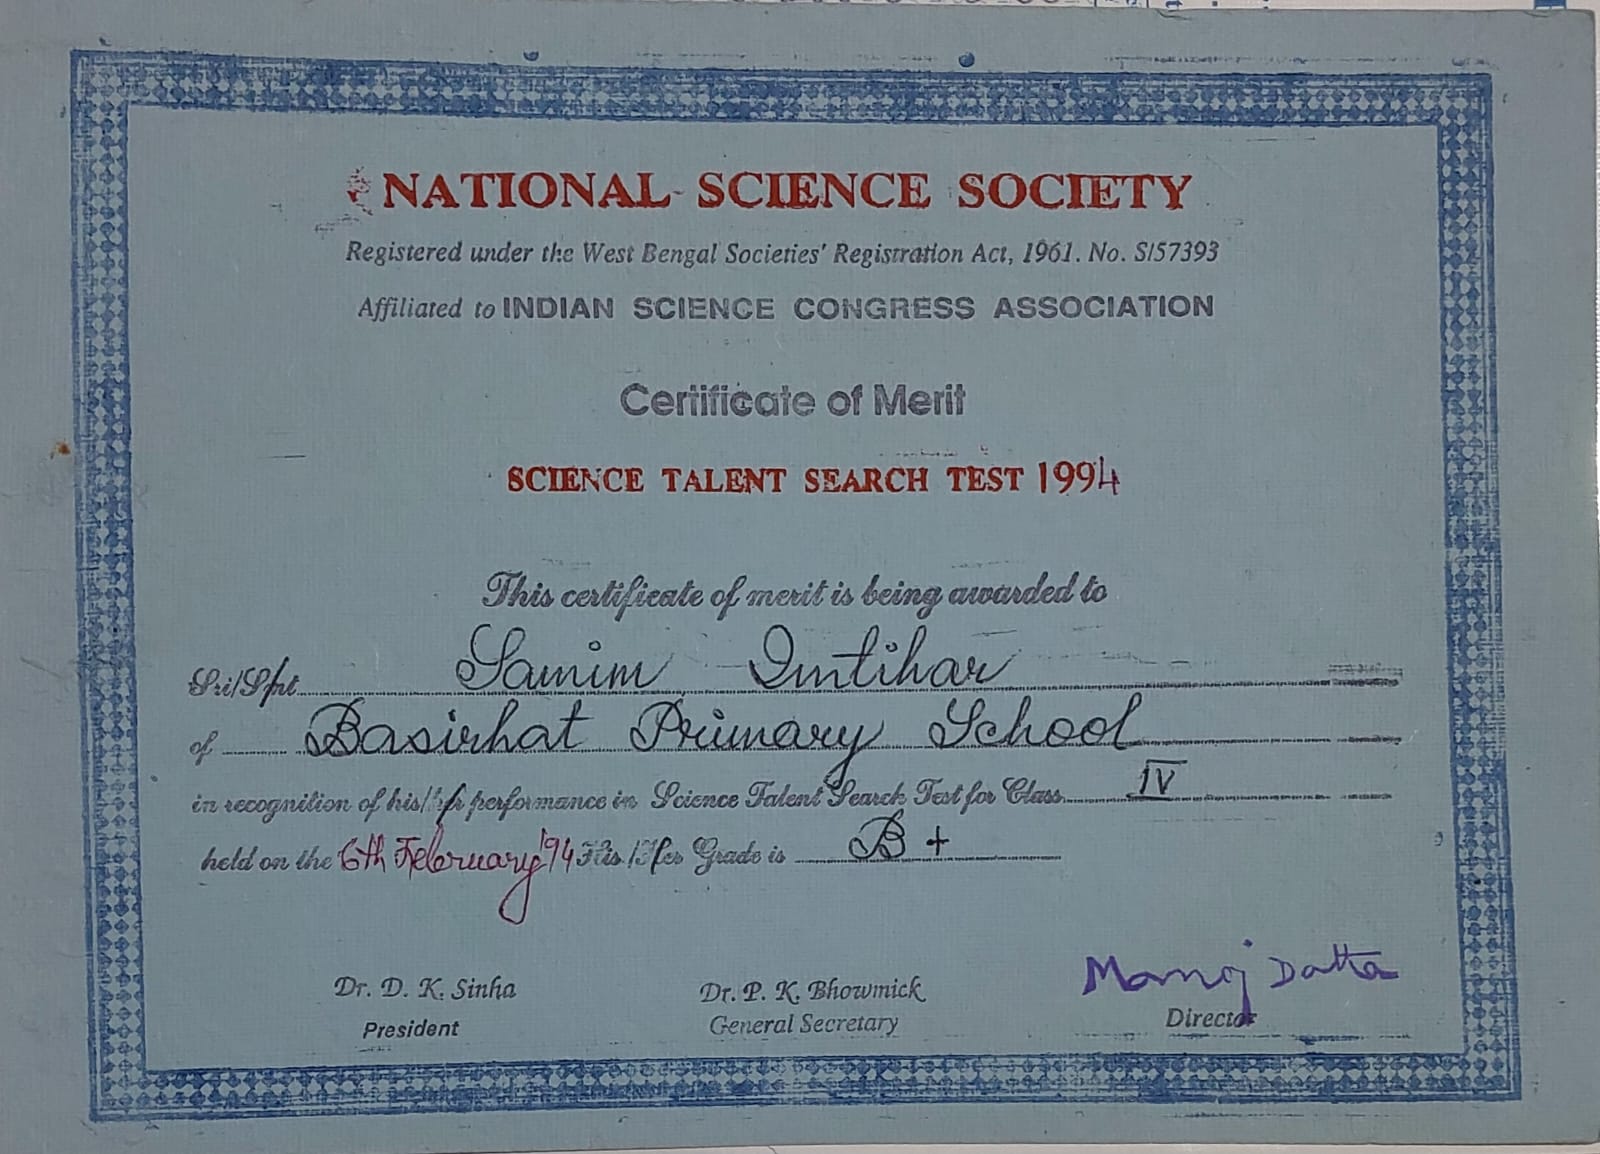 NATIONAL SCIENCE SOCIETY
Registered under the West Bengal Societies' Registration Act, 1961. No. S/57393
Affiliated to INDIAN SCIENCE CONGRESS ASSOCIATION
Certificate of Merit
SCIENCE TALENT SEARCH TEST 1994
This certificate of merit is being awarded to
Sri/Smt. Samim Imtihar
of Basirhat Primary School
in recognition of his/her performance in Science Talent Search Test for Class IV
held on the 6th February '94 His/Her Grade is B+
Dr. D. K. Sinha
President
Dr. P. K. Bhowmick
General Secretary
Manoj Datta
Director